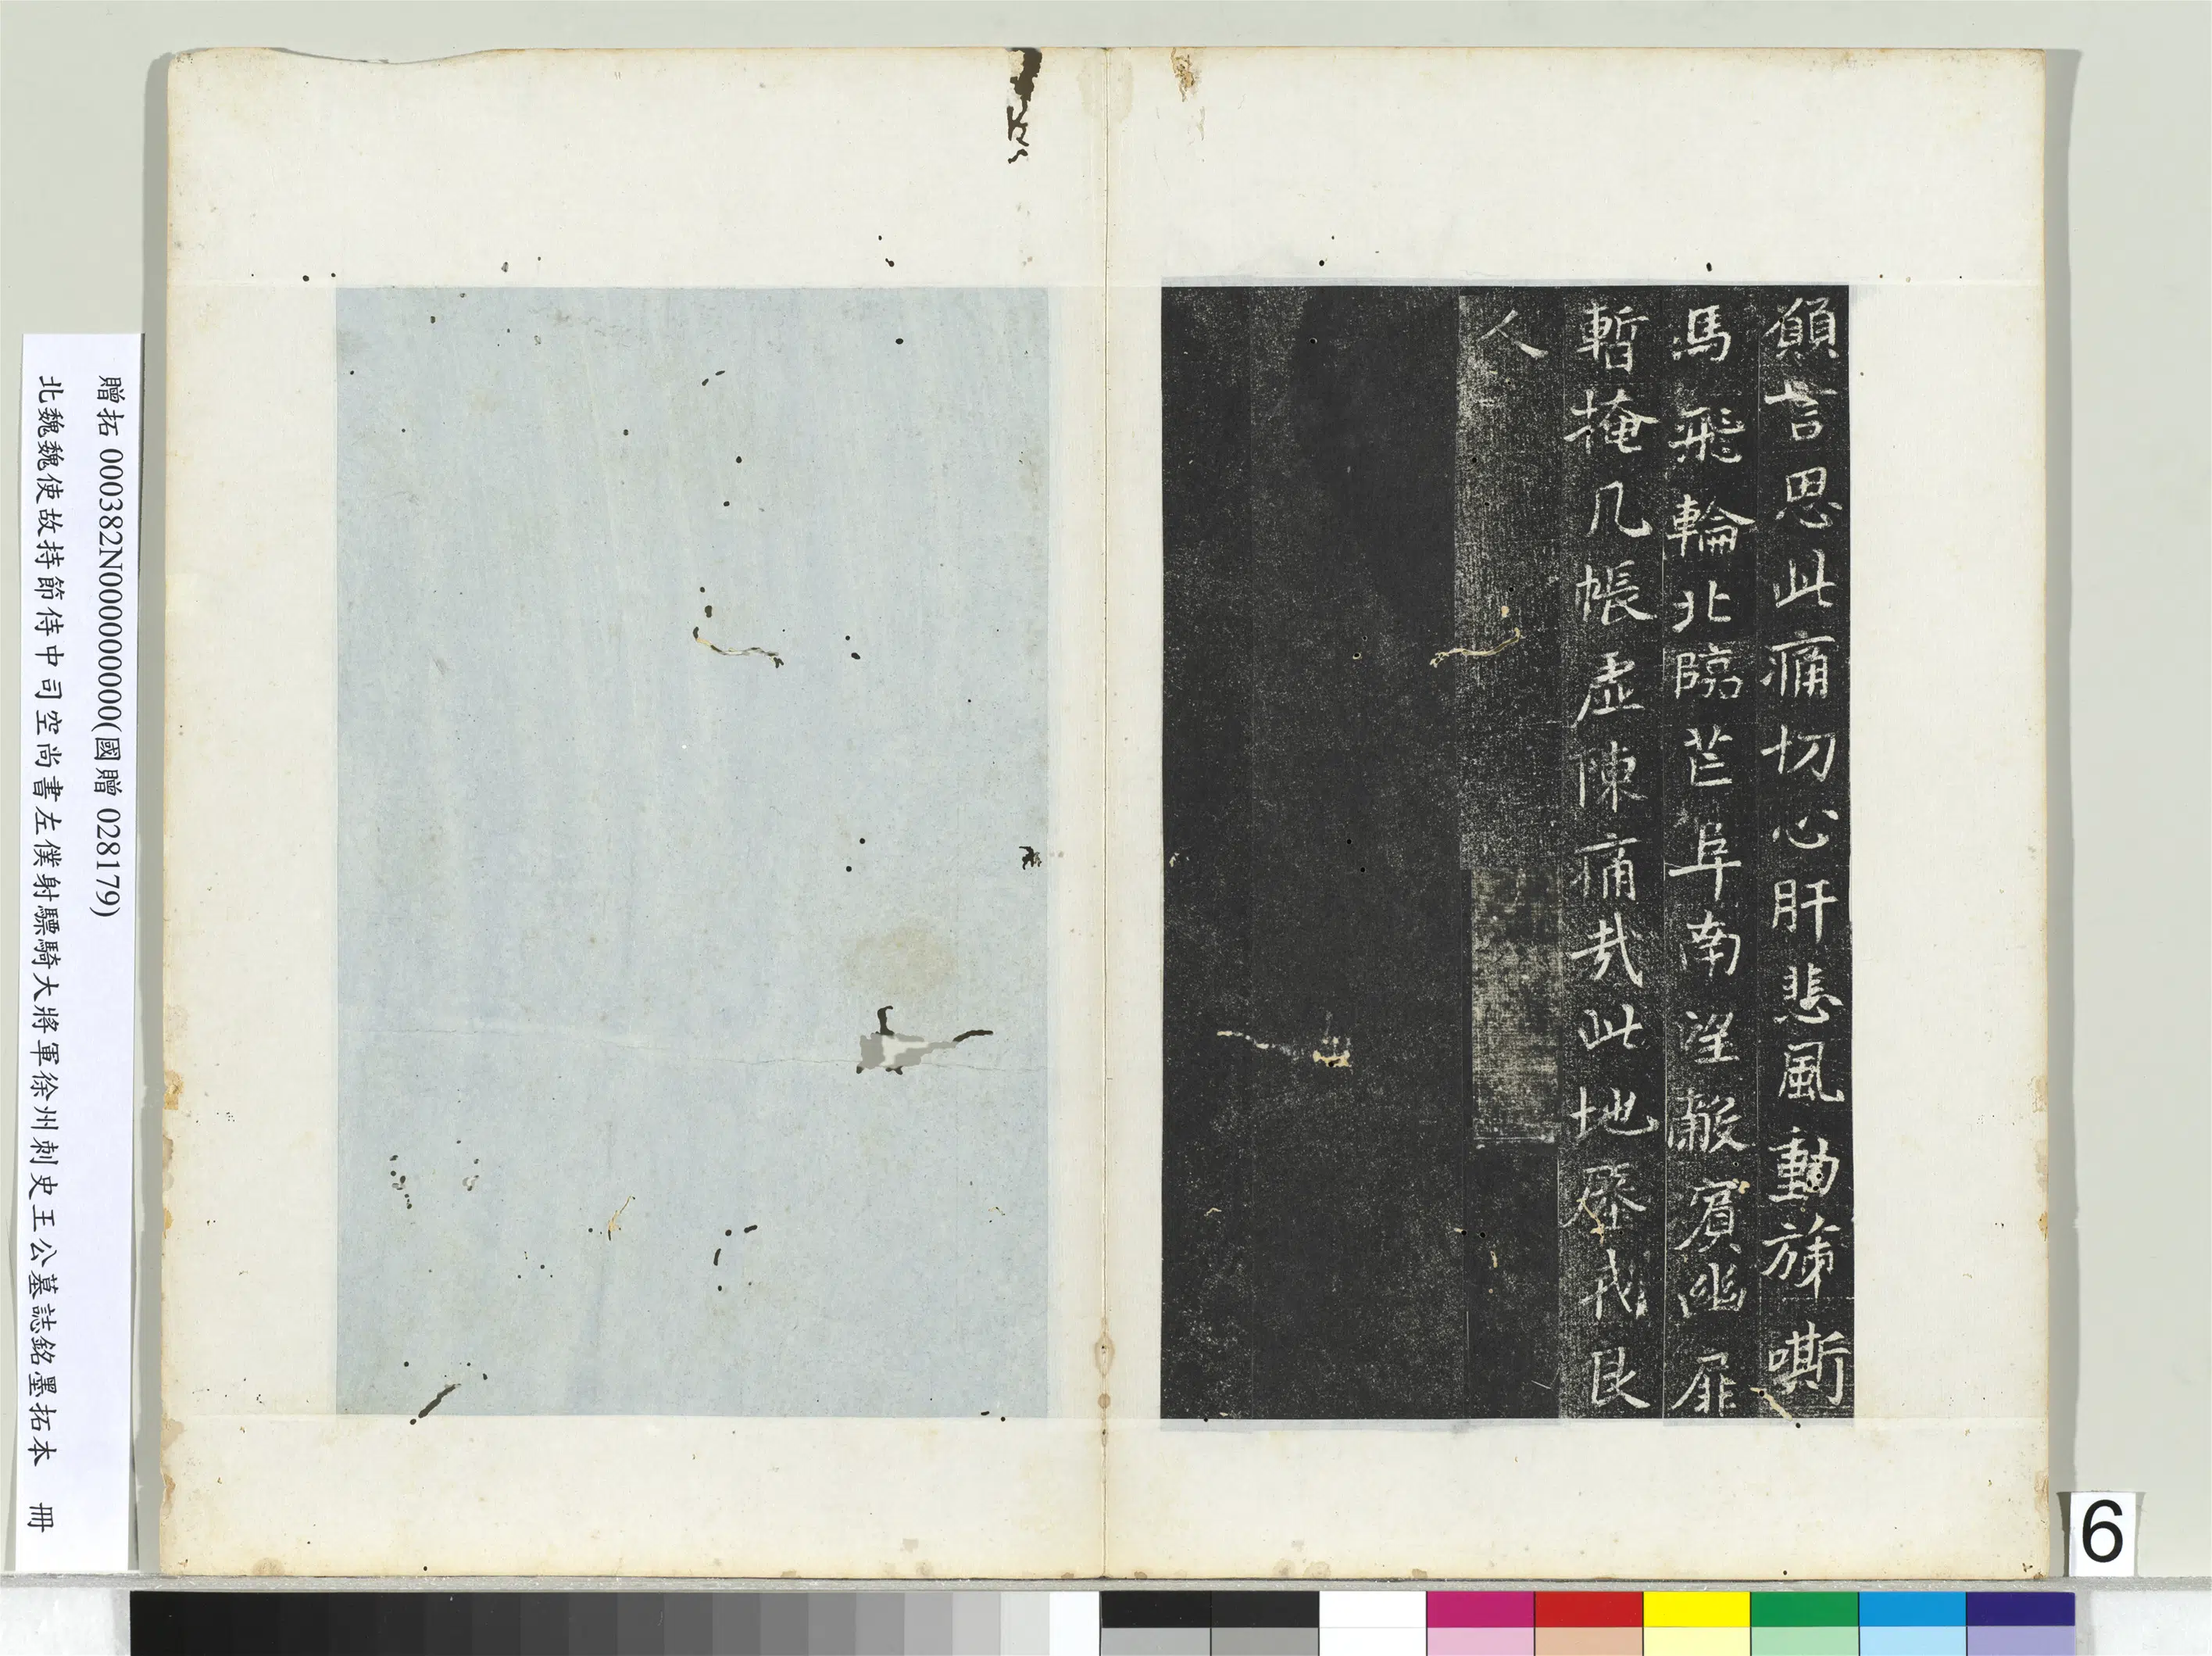 願言思此痛切心肝悲風動旐嘶
馬飛輪北臨芒阜南望巖賓幽扉
暫掩几帳虛陳痛哉此地殲我良
人
贈拓 000382N000000000(國贈 028179)
北魏魏使故持節侍中司空尚書左僕射驃騎大將軍徐州刺史王公墓誌銘墨拓本 冊
6